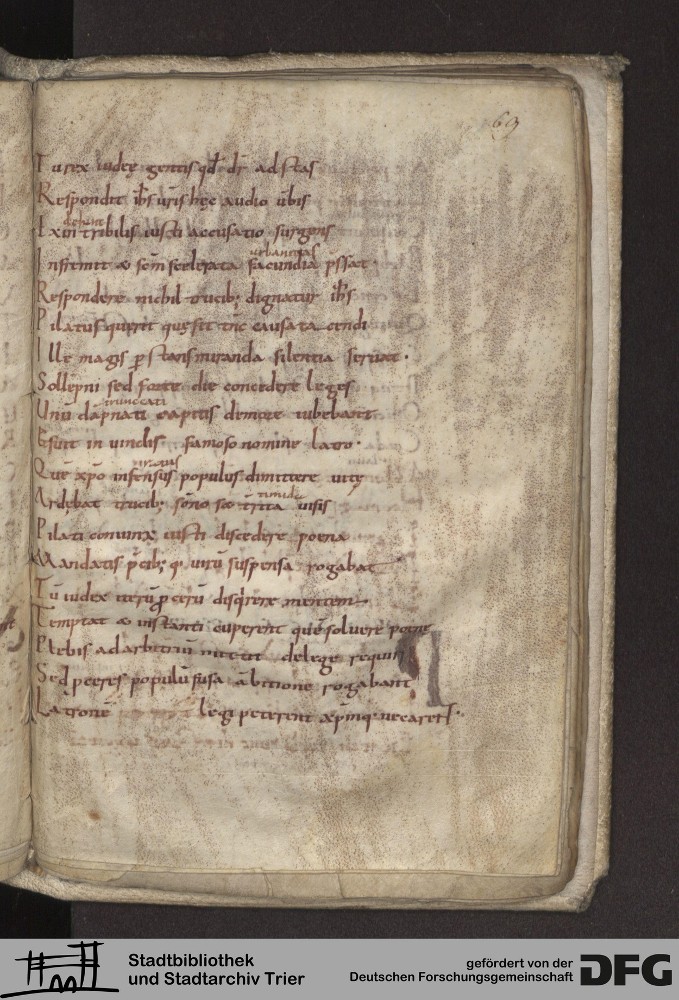 69
Tu rex iudeę gentis qđ dr̄ adstas
Respondit ih̄s ur̄is hęc audio ūbis
dehinc
Exin tribilis iusti accusatio surgens
urbanitas
Insistit & som̄ scelerata facundia pssat.
Respondere nichil trucib; dignatur ih̄s
Pilatus querit quę sit tn̄c causa tacendi
Ille magis p stans miranda silentia seruat.
Sollepni sed forte die concedere leges
truncati
Unū dāpnati capitis demere iubebant
Esuit in uinclis famoso nomine latro.
Quē xp̄o infensus populus dimittere uitę
timida
Ardebat trucib; som̄o sȩ trita uisis
Pilati coniunx iusti discedere poena
Mandatis p̄cib; q; uirū suspensa rogabat
Tū iudex iterū p cerū disq̄rere mentem
Temptat & instanti cuperent quē soluere poene
Plebis ad arbitriū de lege requiri
Sed p ceres populū fusa ābitione rogabant
Latronē legi peterent xp̄m q; necaret.
Stadtbibliothek
und Stadtarchiv Trier
gefördert von der
Deutschen Forschungsgemeinschaft
DFG